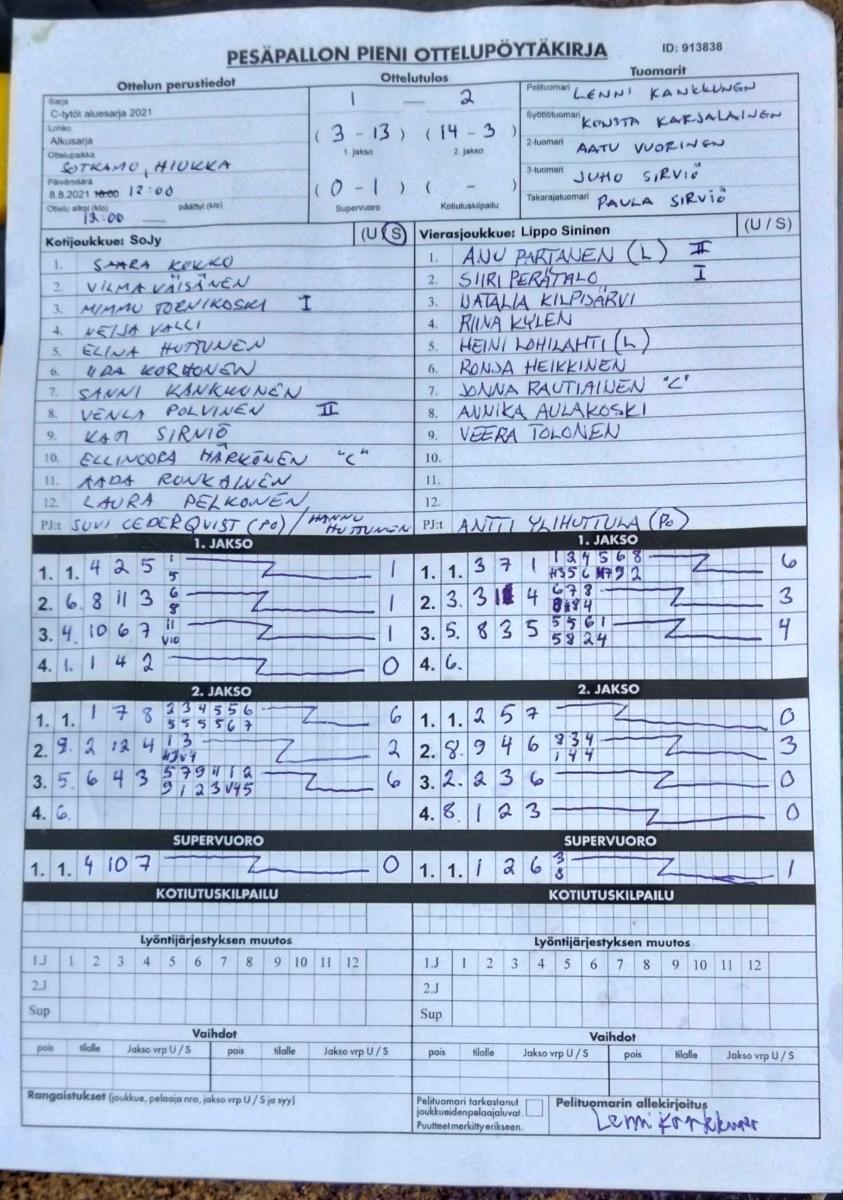 PESÄPALLON PIENI OTTELUPÖYTÄKIRJA ID: 913838
Ottelun perustiedot
Sarja
C-tytöt aluesarja 2021
Lohko
Alkusarja
Ottelupaikka
SOTKAMO, HIUKKA
Päivämäärä
8.8.2021 18:00 12:00
Ottelu alkoi (klo) päättyi (klo)
12:00
Ottelutulos
1 — 2
(3 - 13) (14 - 3)
1. jakso 2. jakso
(0 - 1) ( - )
Supervuoro Kotiutuskilpailu
Tuomarit
Pelituomari LENNI KANKKUNEN
Syöttötuomari KONSTA KARJALAINEN
2-tuomari AATU VUORINEN
3-tuomari JUHO SIRVIÖ
Takarajatuomari PAULA SIRVIÖ
Kotijoukkue: SoJy (U / S)
1. SAARA KOKKO
2. VILMA VÄISÄNEN
3. MIMMU TORNIKOSKI I
4. NEIJA VALLI
5. ELINA HUTTUNEN
6. IIDA KORHONEN
7. SANNI KANKKUNEN
8. VENLA POLVINEN II
9. KATI SIRNIÖ
10. ELLINOORA HÄRKÖNEN "C"
11. AADA RONKAINEN
12. LAURA PELKONEN
PJ:t SUVI CEDERQVIST (PO) / HANNU HUTTUNEN
Vierasjoukkue: Lippo Sininen (U / S)
1. ANU PARTANEN (L) II
2. SIIRI PERÄTALO I
3. NATALIA KILPIJÄRVI
4. RIINA KYLEN
5. HEINI LOHILAHTI (L)
6. RONJA HEIKKINEN
7. JONNA RAUTIAINEN "C"
8. ANNIKA AULAKOSKI
9. VEERA TOLONEN
10.
11.
12.
PJ:t ANTTI YLIHUTTULA (PO)
1. JAKSO
1. 1. 4 2 5 1 1
5
2. 6. 8 11 3 6 1
8
3. 4. 10 6 7 11 1
V10
4. 1. 1 4 2 0
1. JAKSO
1. 1. 3 7 1 1 2 4 5 6 8 6
2. 3. 3 4 6 7 8 3
3. 5. 8 3 5 5 5 6 1 4
5 8 2 4
4. 6.
2. JAKSO
1. 1. 1 7 8 2 3 4 5 5 6 6
5 5 5 5 6 7
2. 9. 2 12 4 1 3 2
3. 5. 6 4 3 5 7 9 11 1 2 6
9 1 2 3 V4 5
4. 6.
2. JAKSO
1. 1. 2 5 7 0
2. 8. 9 4 6 9 3 4 3
1 4 4
3. 2. 2 3 6 0
4. 8. 1 2 3 0
SUPERVUORO
1. 1. 4 10 7 0
SUPERVUORO
1. 1. 1 2 6 3 1
8
KOTIUTUSKILPAILU
KOTIUTUSKILPAILU
Lyöntijärjestyksen muutos
1.J 1 2 3 4 5 6 7 8 9 10 11 12
2.J
Sup
Lyöntijärjestyksen muutos
1.J 1 2 3 4 5 6 7 8 9 10 11 12
2.J
Sup
Vaihdot
pois tilalle Jakso vrp U / S pois tilalle Jakso vrp U / S
Vaihdot
pois tilalle Jakso vrp U / S pois tilalle Jakso vrp U / S
Rangaistukset (joukkue, pelaaja nro, jakso vrp U / S ja syy)
Pelituomari tarkastanut
joukkueidenpelaajaluvat.
Puutteet merkitty erikseen.
Pelituomarin allekirjoitus
Lenni Kankkunen